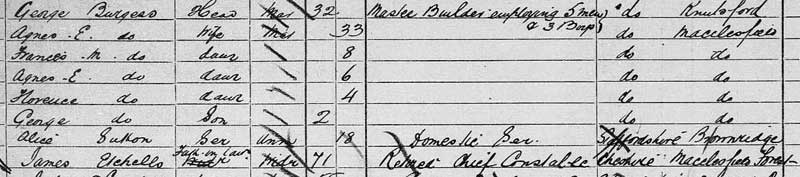 George Burgess Head Mar 32 Master Builder employing 5 men do Knutsford
Agnes E. do Wife Mar 33 & 3 Boys do Macclesfield
Frances M. do daur 8 do do
Agnes E. do daur 6 do do
Florence do daur 4 do do
George do Son 2 do do
Alice Sutton Ser Unm 18 Domestic Ser. Staffordshire
James Etchells Fath-in-law Mar 71 Retired Chief Constable Cheshire Macclesfield Forest